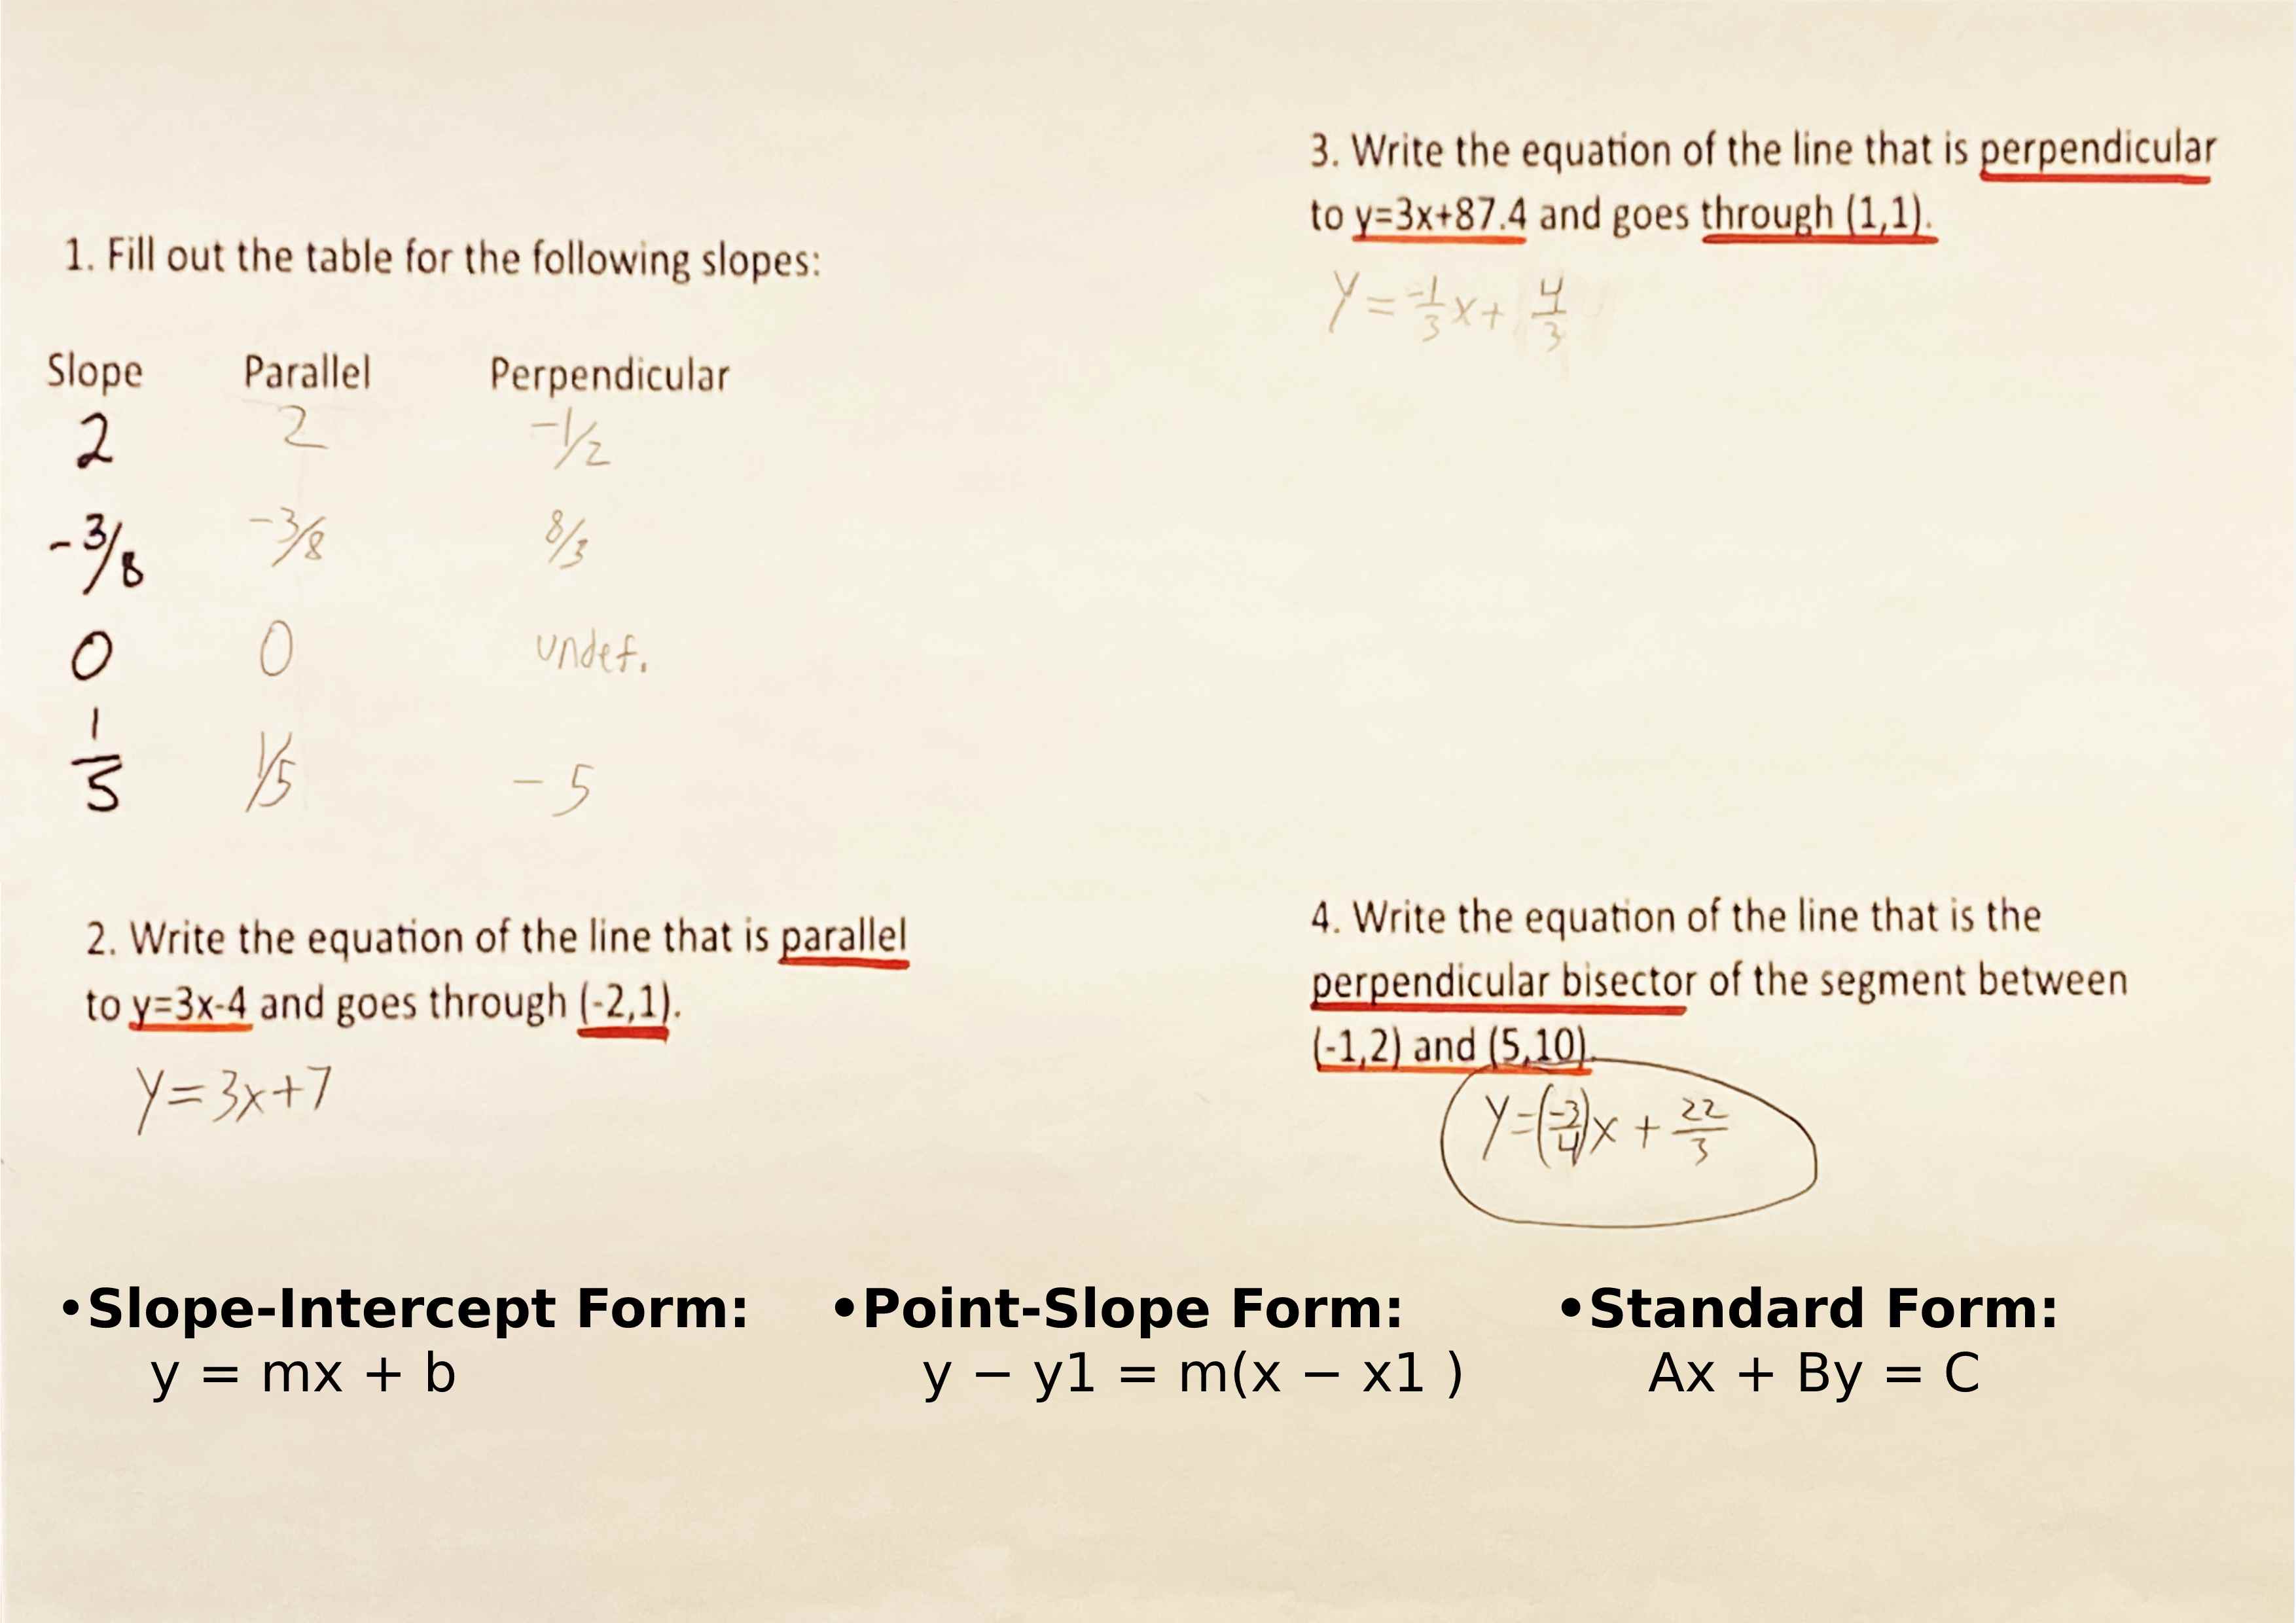 1. Fill out the table for the following slopes:
Slope Parallel Perpendicular
2 2 -1/2
-3/8 -3/8 8/3
0 0 undef.
1/5 1/5 -5
2. Write the equation of the line that is parallel
to y=3x-4 and goes through (-2,1).
y=3x+7
3. Write the equation of the line that is perpendicular
to y=3x+87.4 and goes through (1,1).
y=-1/3x+4/3
4. Write the equation of the line that is the
perpendicular bisector of the segment between
(-1,2) and (5,10).
y=(-3/4)x+22/3
•Slope-Intercept Form:
y = mx + b
•Point-Slope Form:
y − y1 = m(x − x1 )
•Standard Form:
Ax + By = C